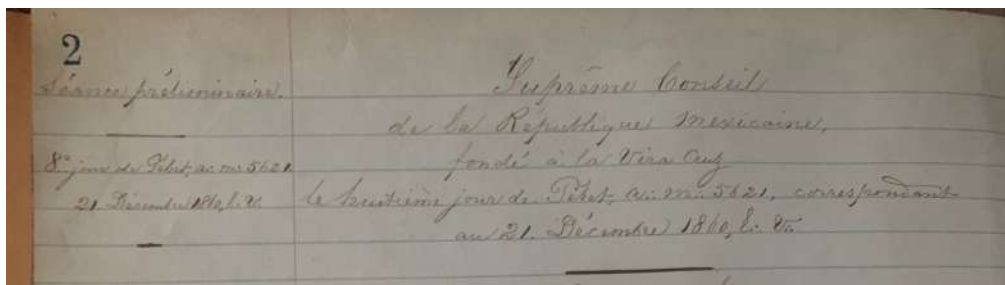 2
Séance préliminaire.
8e jour de Tébet, a∴ m∴ 5621
21 Décembre 1860, è. v.
Suprême Conseil
de la République Mexicaine,
fondé à la Vera Cruz
le huitième jour de Tébet, a∴ m∴ 5621, correspondant
au 21 Décembre 1860, è∴ v∴